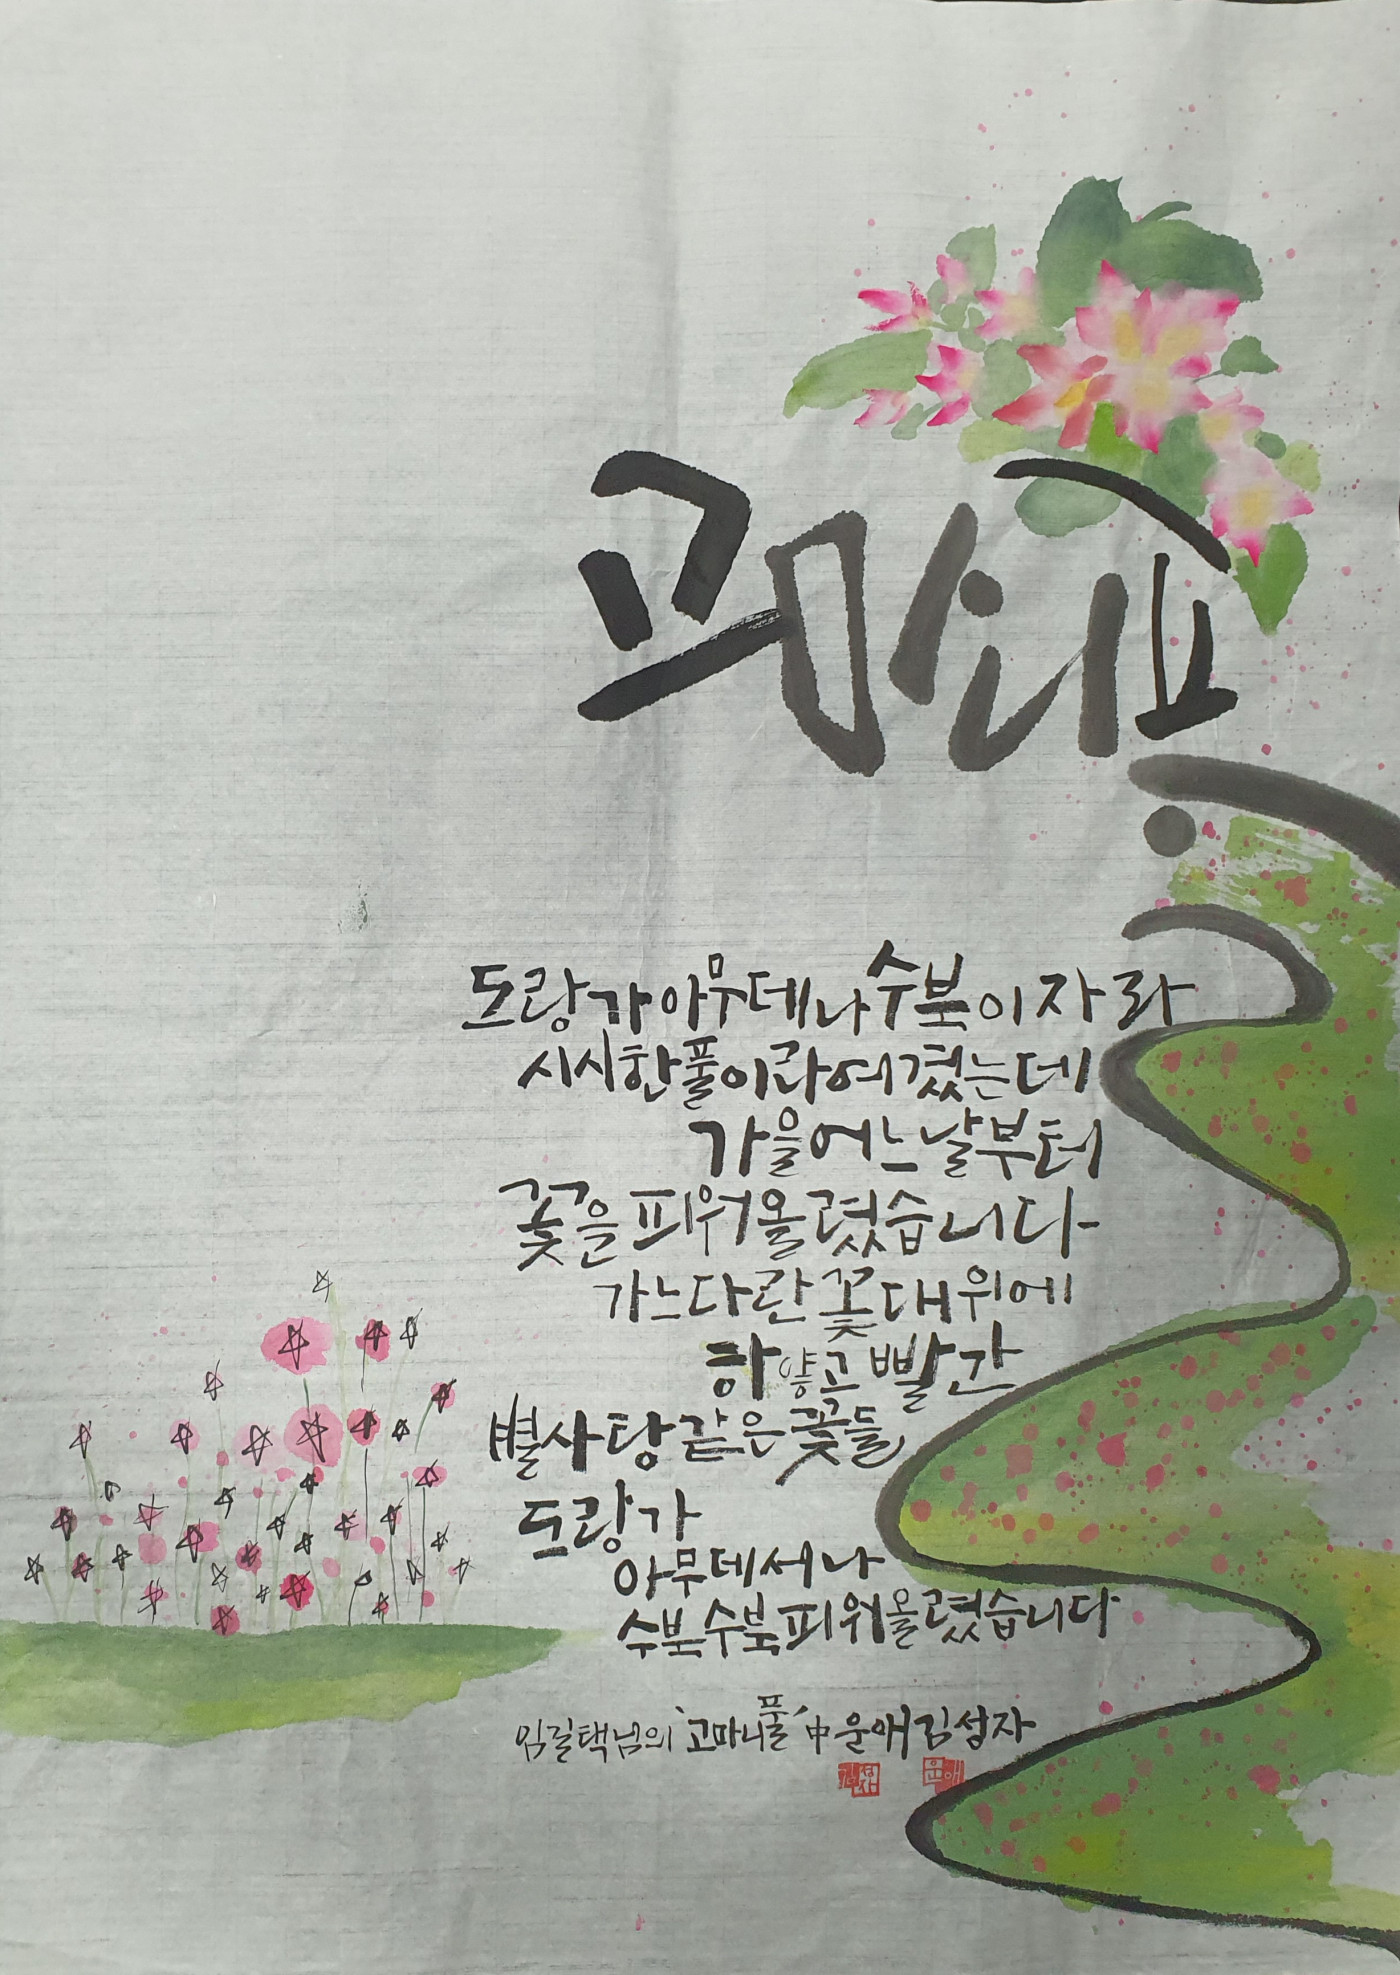 고마니풀
도랑가 아무데나 수북이 자라
시시한 풀이라 여겼는데
가을 어느 날부터
꽃을 피워 올렸습니다
가느다란 꽃대 위에
하얗고 빨간
별사탕 같은 꽃들
도랑가
아무데서나
수북수북 피워 올렸습니다
임길택님의 '고마니풀' 中 운애 김성자
김성자 운애